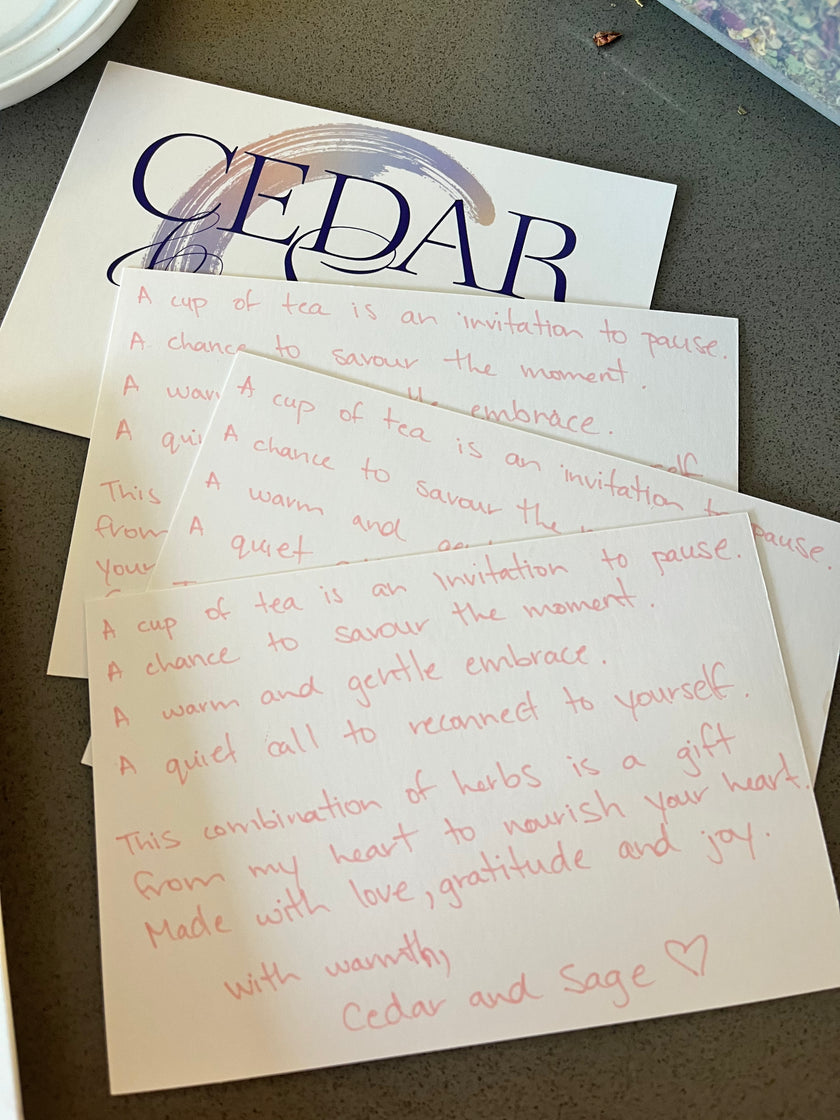 CEDAR
A cup of tea is an invitation to pause.
A chance to savour the moment.
A warm the embrace.
A qui self
This
from
your
A cup of tea is an invitation to pause.
A chance to savour the
A warm and
A quiet
A cup of tea is an invitation to pause.
A chance to savour the moment.
A warm and gentle embrace.
A quiet call to reconnect to yourself.
This combination of herbs is a gift
from my heart to nourish your heart.
Made with love, gratitude and joy.
with warmth,
Cedar and Sage ♡